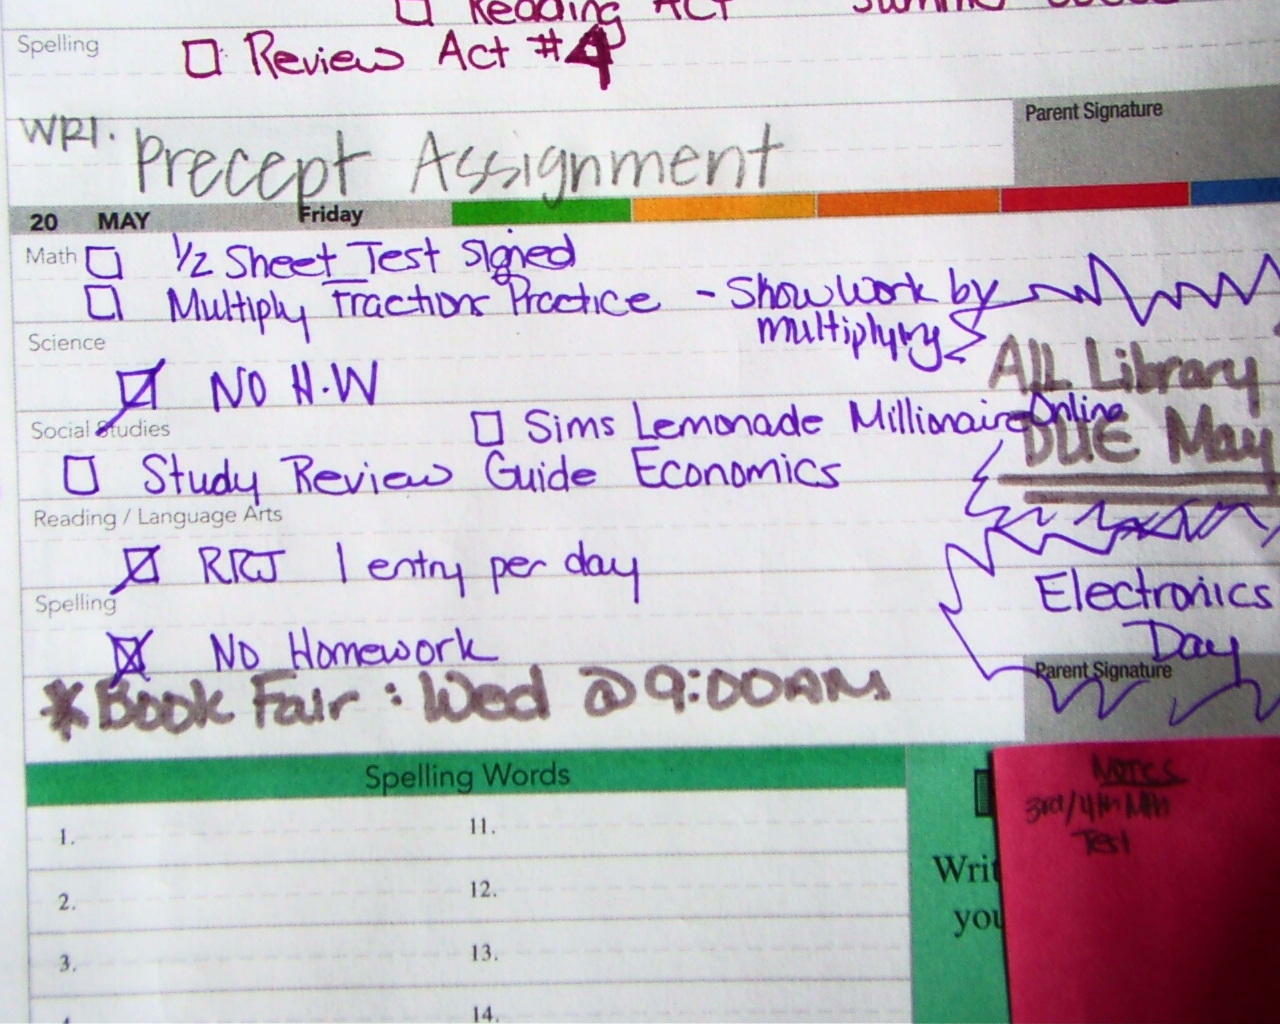 Reading Act
Spelling
Review Act #4
WRI. Precept Assignment
Parent Signature
20 MAY Friday
Math 1/2 Sheet Test signed
Multiply Fractions Practice - Show work by
multiplying
Science
NO H.W
All Library
Social Studies
Sims Lemonade Millionaire Online
DUE May
Study Review Guide Economics
Reading / Language Arts
RRJ 1 entry per day
Electronics
Day
Spelling
No Homework
Parent Signature
*Book Fair : Wed @ 9:00AM
Spelling Words
Notes
3rd/4th
Test
1. 11.
2. 12.
3. 13.
14.